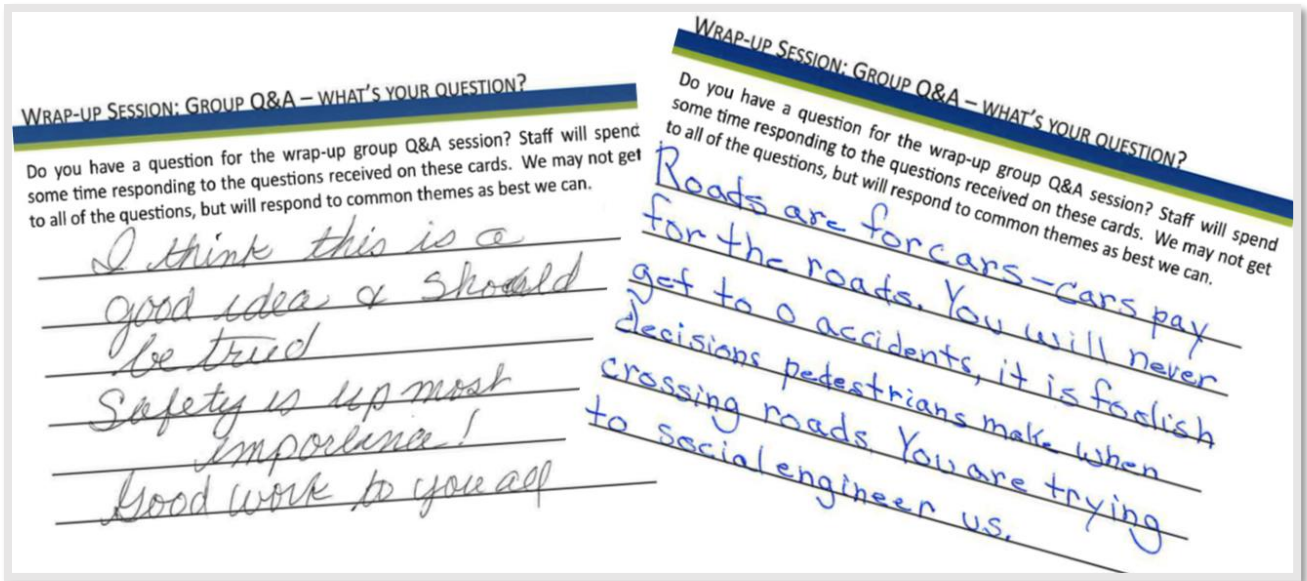 WRAP-UP SESSION: GROUP Q&A – WHAT'S YOUR QUESTION?
Do you have a question for the wrap-up group Q&A session? Staff will spend
some time responding to the questions received on these cards. We may not get
to all of the questions, but will respond to common themes as best we can.
I think this is a
good idea & should
be tried
Safety is upmost
importance!
Good work to you all
WRAP-UP SESSION: GROUP Q&A – WHAT'S YOUR QUESTION?
Do you have a question for the wrap-up group Q&A session? Staff will spend
some time responding to the questions received on these cards. We may not get
to all of the questions, but will respond to common themes as best we can.
Roads are for cars-cars pay
for the roads. You will never
get to 0 accidents, it is foolish
decisions pedestrians make when
crossing roads. You are trying
to social engineer us.